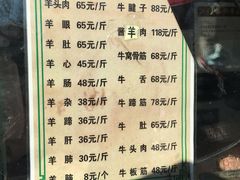 羊头肉 65元/斤
羊眼 65元/斤
羊肚 65元/斤
羊心 45元/斤
羊肠 48元/斤
羊杂 38元/斤
羊蹄 36元/斤
羊肝 36元/斤
羊肺 30元/斤
羊肺 8元/个
牛腱子 88元/斤
酱羊肉 118元/斤
牛窝骨筋 68元/斤
牛舌 68元/斤
牛蹄筋 78元/斤
牛肚 65元/斤
牛头肉 48元/斤
牛板筋 48元/斤